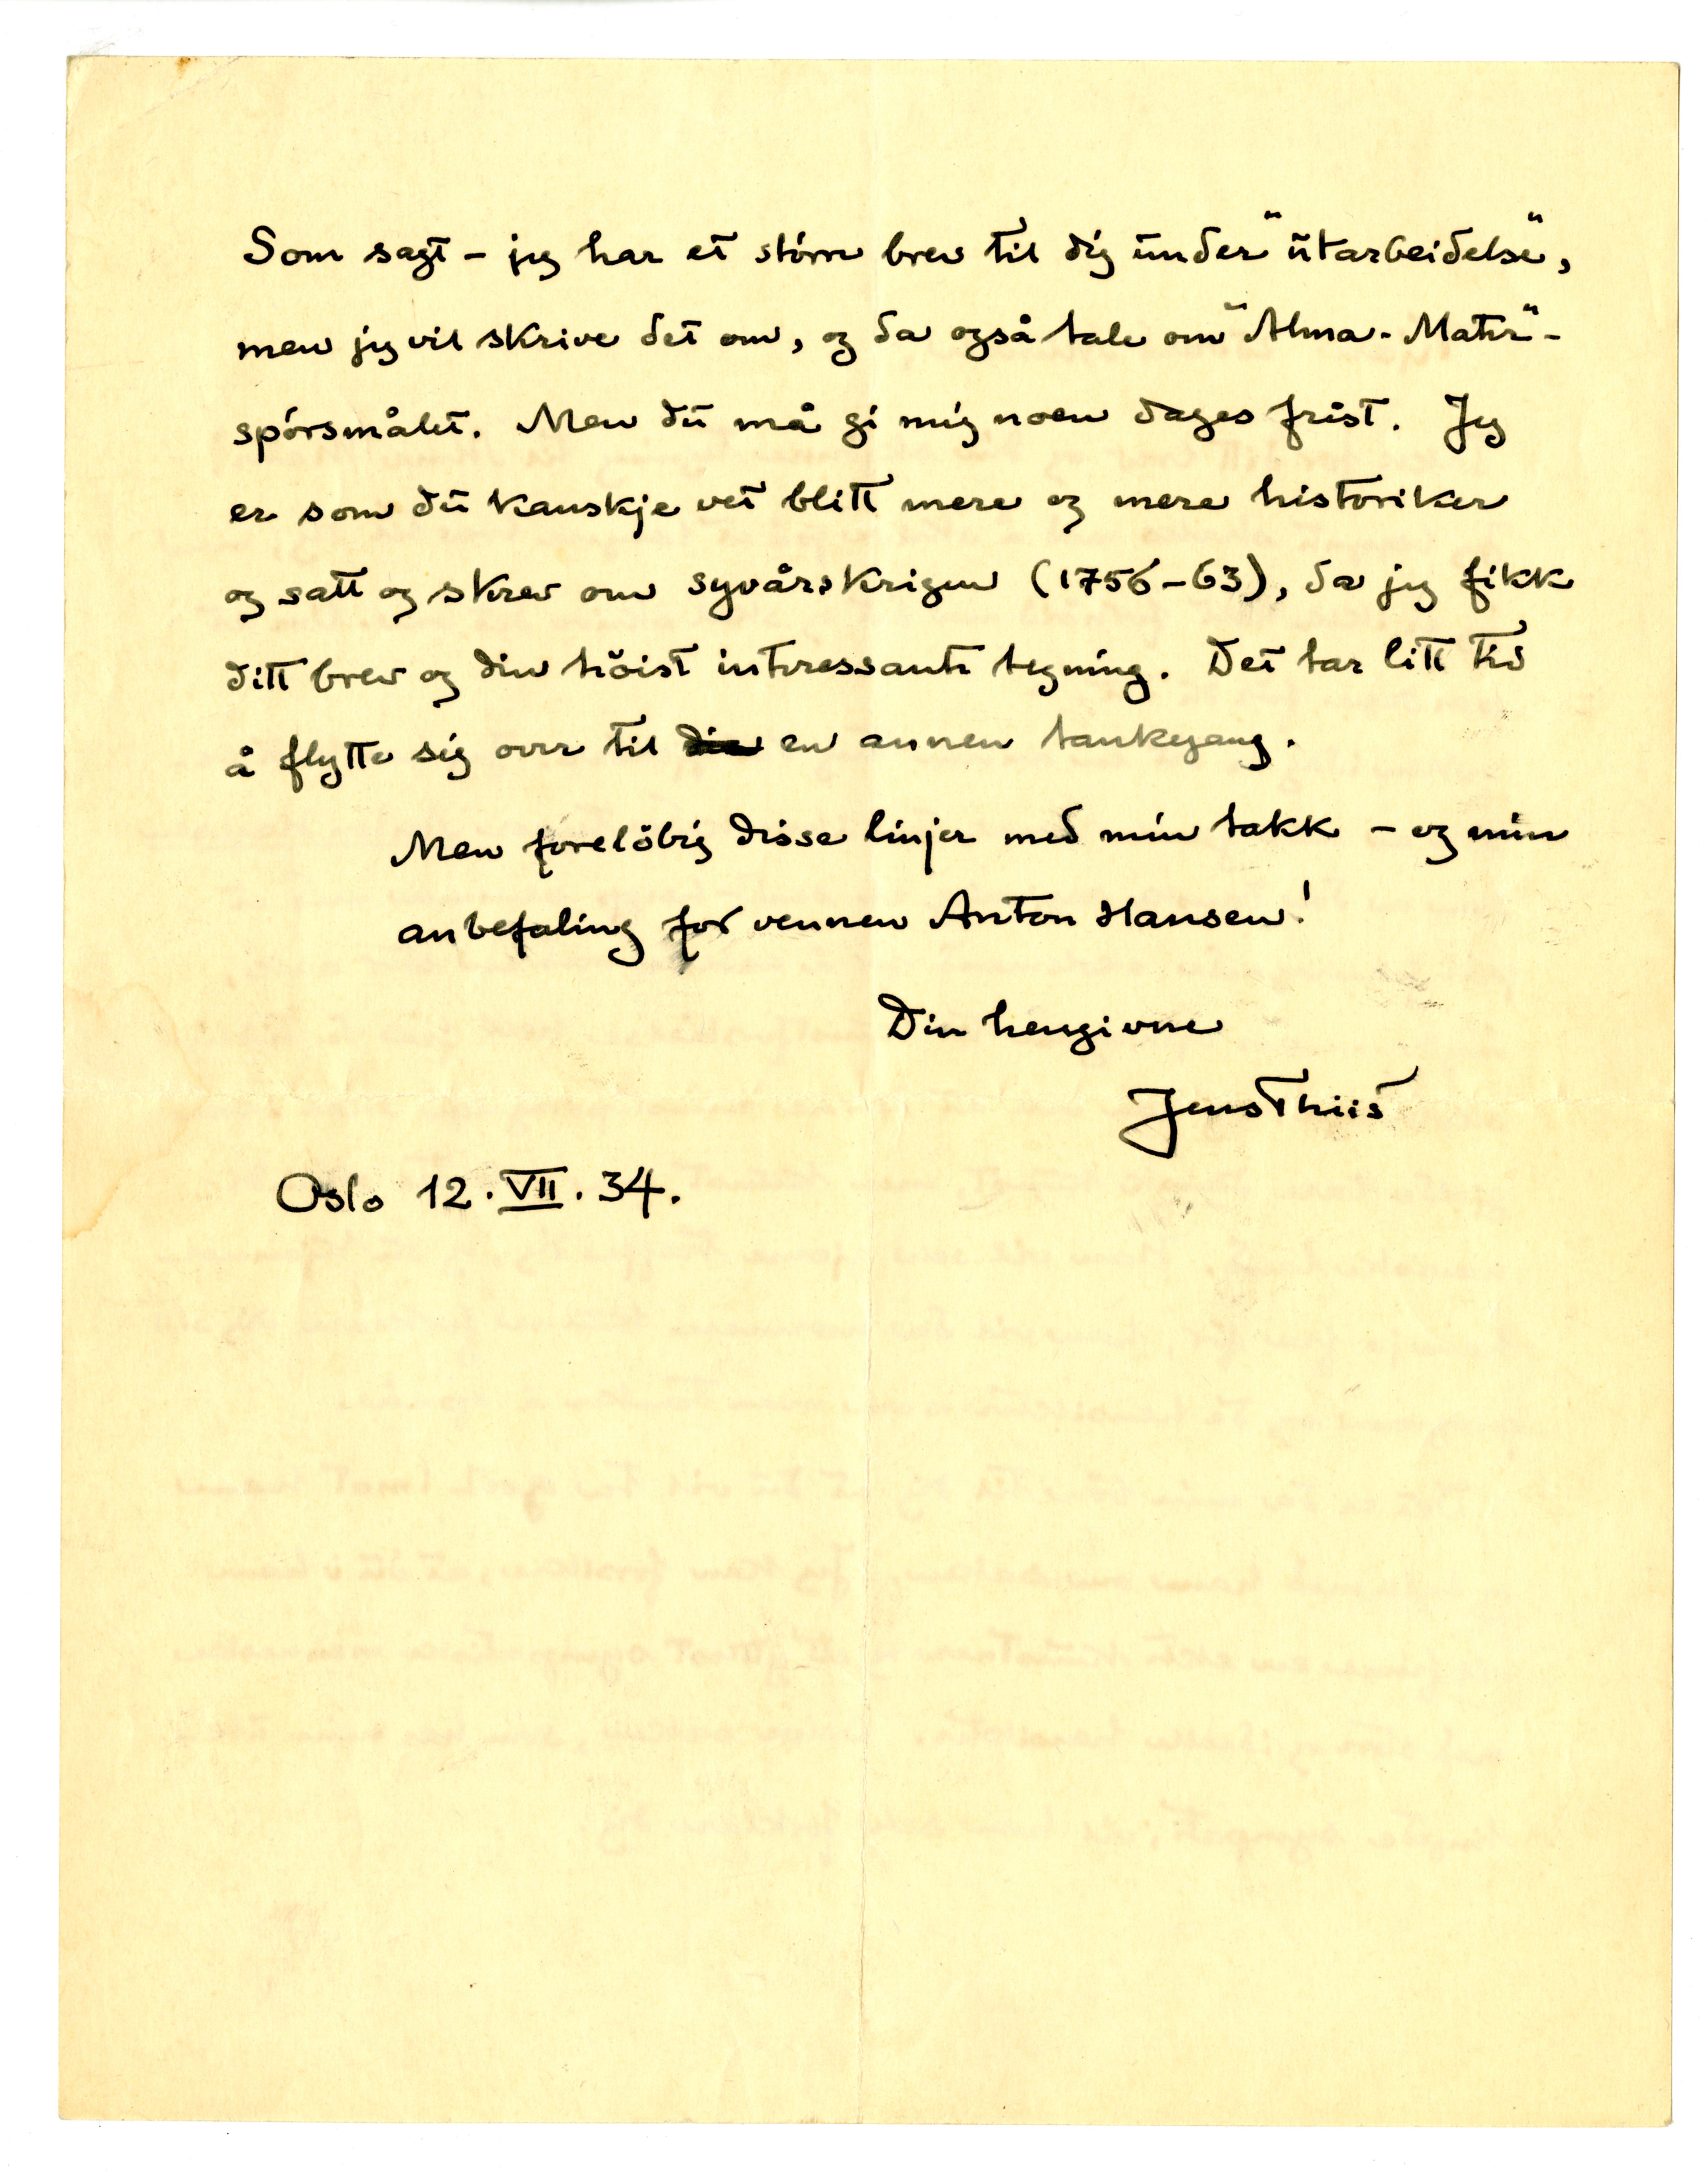 Som sagt – jeg har et större brev til dig under "utarbeidelse",
men jeg vil skrive det om, og da også tale om "Alma-Mater"-
spörsmålet. Men du må gi mig noen dages frist. Jeg
er som du kanskje vet blitt mere og mere historiker
og satt og skrev om syvårskrigen (1756–63), da jeg fikk
ditt brev og din höist interessante tegning. Det tar litt tid
å flytte sig over til din en annen tankegang.
Men forelöbig disse linjer med min takk – og min
anbefaling for vennen Anton Hansen!
Din hengivne
Jens Thiis
Oslo 12. VII. 34.